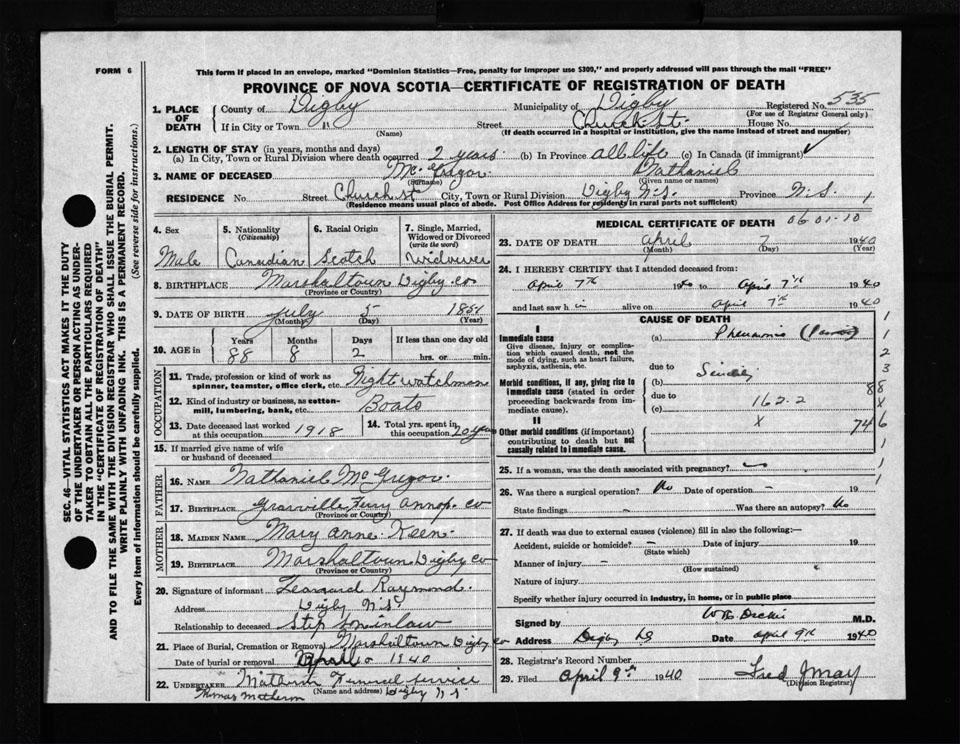 FORM 6
This form if placed in an envelope, marked "Dominion Statistics—Free, penalty for improper use $300," and properly addressed will pass through the mail "FREE"
PROVINCE OF NOVA SCOTIA—CERTIFICATE OF REGISTRATION OF DEATH
SEC. 46—VITAL STATISTICS ACT MAKES IT THE DUTY
OF THE UNDERTAKER OR PERSON ACTING AS UNDER-
TAKER TO OBTAIN ALL THE PARTICULARS REQUIRED
IN THE "CERTIFICATE OF REGISTRATION OF DEATH"
AND TO FILE THE SAME WITH THE DIVISION REGISTRAR WHO SHALL ISSUE THE BURIAL PERMIT.
WRITE PLAINLY WITH UNFADING INK. THIS IS A PERMANENT RECORD.
Every item of information should be carefully supplied. (See reverse side for instructions.)
1. PLACE OF DEATH County of Digby Municipality of Digby Registered No. 535
(For use of Registrar General only)
If in City or Town " Street Church st. House No.
(Name) (If death occurred in a hospital or institution, give the name instead of street and number)
2. LENGTH OF STAY (in years, months and days)
(a) In City, Town or Rural Division where death occurred 2 years (b) In Province all life (c) In Canada (if immigrant)
3. NAME OF DECEASED McGregor Nathaniel
(Surname) (Given name or names)
RESIDENCE No. Street Church st City, Town or Rural Division Digby N.S. Province N.S.
(Residence means usual place of abode. Post Office Address for residents in rural parts not sufficient)
4. Sex 5. Nationality (Citizenship) 6. Racial Origin 7. Single, Married, Widowed or Divorced (write the word)
Male Canadian Scotch Widower
8. BIRTHPLACE Marshaltown Digby co
(Province or Country)
9. DATE OF BIRTH July 5 1851
(Month) (Day) (Year)
10. AGE in Years Months Days If less than one day old
88 8 2 hrs. or min.
OCCUPATION
11. Trade, profession or kind of work as spinner, teamster, office clerk, etc. Night watchman
12. Kind of industry or business, as cotton-mill, lumbering, bank, etc. Boats
13. Date deceased last worked at this occupation 1918 14. Total yrs. spent in this occupation 20 years
15. If married give name of wife or husband of deceased
FATHER
16. NAME Nathaniel McGregor
17. BIRTHPLACE Granville Ferry Annap. co
(Province or Country)
MOTHER
18. MAIDEN NAME Mary Anne Keen
19. BIRTHPLACE Marshaltown Digby co
(Province or Country)
20. Signature of informant Leonard Raymond
Address Digby N.S.
Relationship to deceased Step son in law
21. Place of Burial, Cremation or Removal Marshaltown Digby co
Date of burial or removal 1940
22. UNDERTAKER Funeral Service
(Name and address) Digby N.S.
Thomas
MEDICAL CERTIFICATE OF DEATH
06 01-10
23. DATE OF DEATH April 7 1940
(Month) (Day) (Year)
24. I HEREBY CERTIFY that I attended deceased from:
April 7th 1940 to April 7th 1940
and last saw h im alive on April 7th 1940
CAUSE OF DEATH
I
Immediate cause (a) Pneumonia
Give disease, injury or complication which caused death, not the mode of dying, such as heart failure, asphyxia, asthenia, etc.
due to Senility
Morbid conditions, if any, giving rise to immediate cause (stated in order proceeding backwards from immediate cause). (b)
due to
(c) 162-2
II
Other morbid conditions (if important) contributing to death but not causally related to immediate cause. X
1
1
2
3
88
X
746
1
1
1
25. If a woman, was the death associated with pregnancy?
26. Was there a surgical operation? No Date of operation – 19
State findings – Was there an autopsy? No
27. If death was due to external causes (violence) fill in also the following:—
Accident, suicide or homicide? – Date of injury 19
(State which)
Manner of injury –
(How sustained)
Nature of injury
Specify whether injury occurred in industry, in home, or in public place
Signed by M.D.
Address Digby NS Date April 9th 1940
28. Registrar's Record Number
29. Filed April 9th 1940 Fred J May
(Division Registrar)